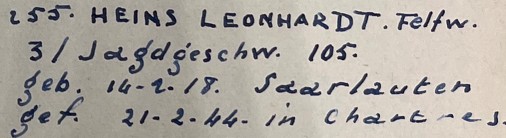 255. HEINS LEONHARDT. Felfw.
3/ Jagdgeschw. 105.
geb. 14-2-18. Saarlauten
gef. 21-2-44. in Chartres.